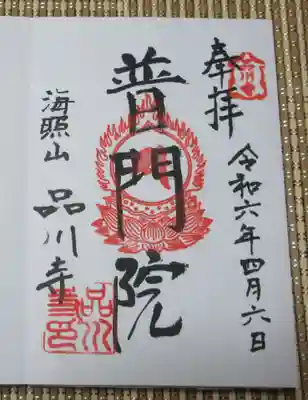 奉拝
令和六年四月六日
普門院
海照山 品川寺